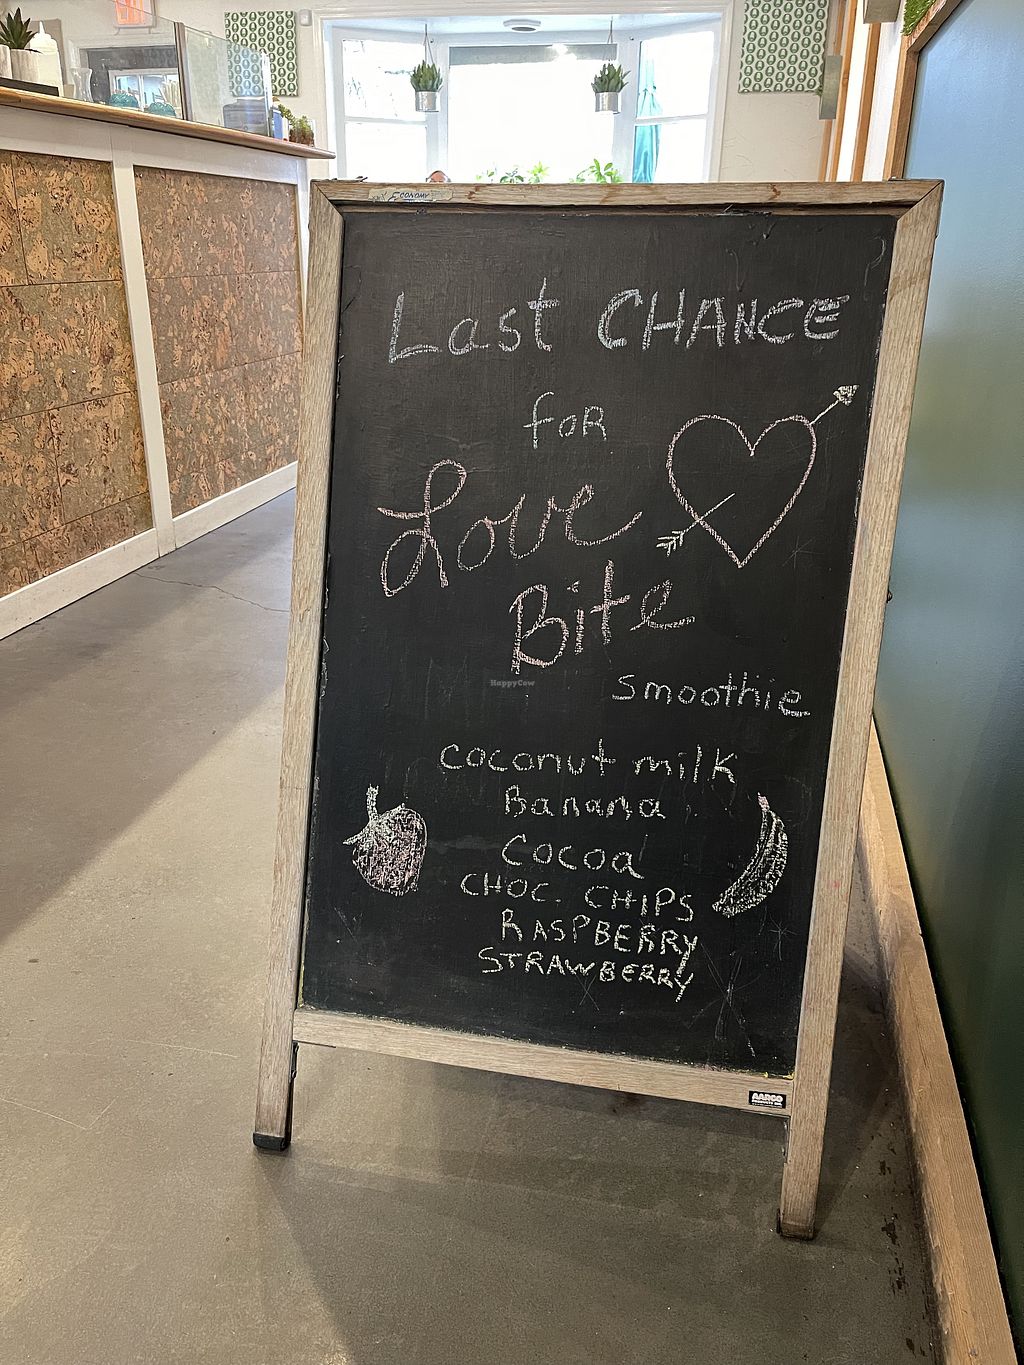 ECONOMY
Last CHANCE
for
Love
Bite
smoothie
coconut milk
Banana
Cocoa
CHOC. CHIPS
RASPBERRY
STRAWBERRY
HappyCow
AARCO